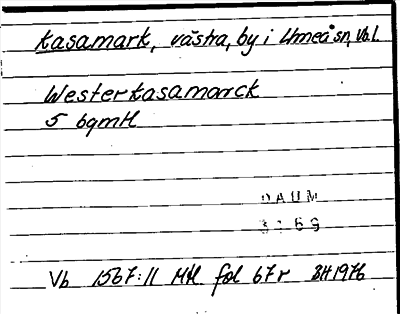 Kasamark, västra, by i Umeå sn, Vb l.
Westerkasamarck
5 bgmtl
DAUM
3169
Vb 1567:11 Mtl fol 67r BH 1976